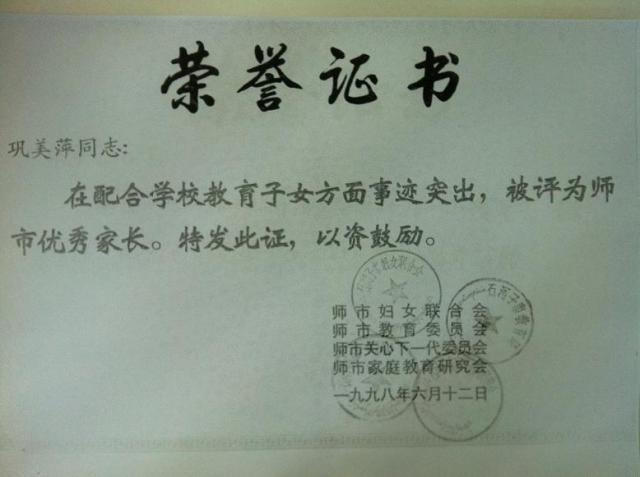 荣誉证书
巩美萍同志:
在配合学校教育子女方面事迹突出，被评为师
市优秀家长。特发此证，以资鼓励。
师市妇女联合会
师市教育委员会
师市关心下一代委员会
师市家庭教育研究会
一九九八年六月十二日